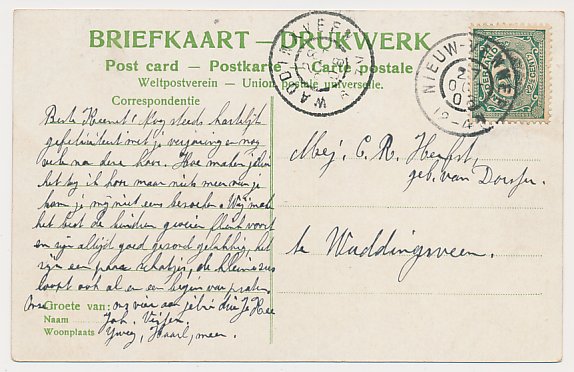 BRIEFKAART — DRUKWERK
Post card — Postkarte — Carte postale
Weltpostverein — Union postale universelle.
Correspondentie
Beste Keunet! Nog steeds hartelijk
gefeliciteerd met je verjaring en nog
vele na deze hoor. Hoe maken jelui
het nog ik hoor maar niets meer van je
kom je mij niet eens bezoeken. Wij maken
het best de kinderen groeien flink voort
en zijn altijd goed gezond gelukkig, het
zijn een paar schatjes, de kleine zus
loopt ook al en begin van praten
Onze Groete van: ons vier aan jelui drie Je
Naam Joh.
Woonplaats Haarl, meer.
WADDINXVEEN
NIEUW-VENNEP
NEDERLAND
Mej. C. R. Herfst,
geb. van
te Waddingsveen.